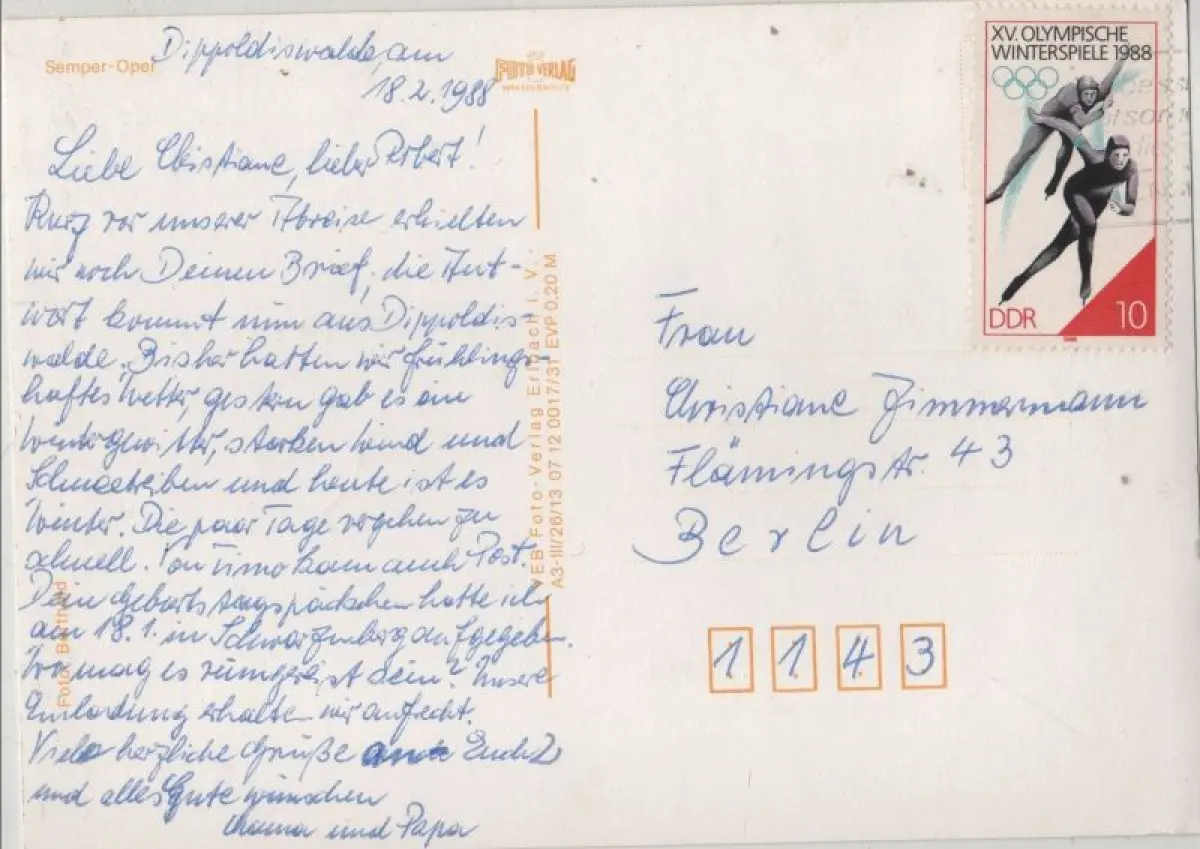 Semper-Oper
Dippoldiswalde, am
18.2.1988
FOTO VERLAG
Liebe Christiane, lieber Robert!
Kurz vor unserer Abreise erhielten
wir noch Deinen Brief, die Ant-
wort kommt nun aus Dippoldis-
walde. Bisher hatten wir frühlings-
haftes Wetter, gestern gab es ein
Wintergewitter, starken Wind und
Schneetreiben und heute ist es
Winter. Die paar Tage vergehen zu
schnell. Von Timo kam auch Post.
Dein Geburtstagspäckchen hatte ich
am 18.1. in Schwarzenberg aufgegeben.
Wo mag es rumgereist sein? Unsere
Einladung erhalten wir aufrecht.
Viele herzliche Grüße Euch 2
und alles Gute wünschen
Mama und Papa
Foto:
VEB Foto-Verlag Erlbach i. V.
A3-III/26/13 07 12 0017/31 EVP 0,20 M
XV. OLYMPISCHE
WINTERSPIELE 1988
DDR 10
Frau
Christiane Zimmermann
Flämingstr. 43
Berlin
1 1 4 3